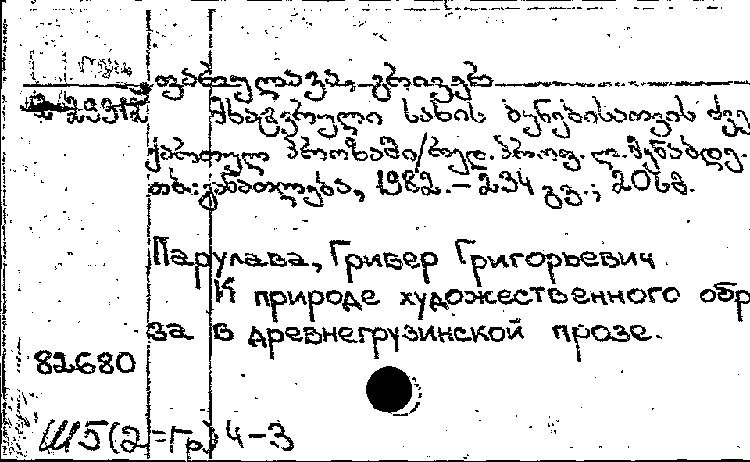 ფარულავა, გრივერ
მხატვრული სახის ბუნებისათვის ძვე
ქართულ პროზაში/რედ. პროფ. ლ. მენაბდე. -
თბ.: განათლება, 1982. – 234 გვ.; 20 სმ.
Парулава, Гривер Григорьевич
К природе художественного обр
за в древнегрузинской прозе.
82680
Ш5(2=Гр)4-3